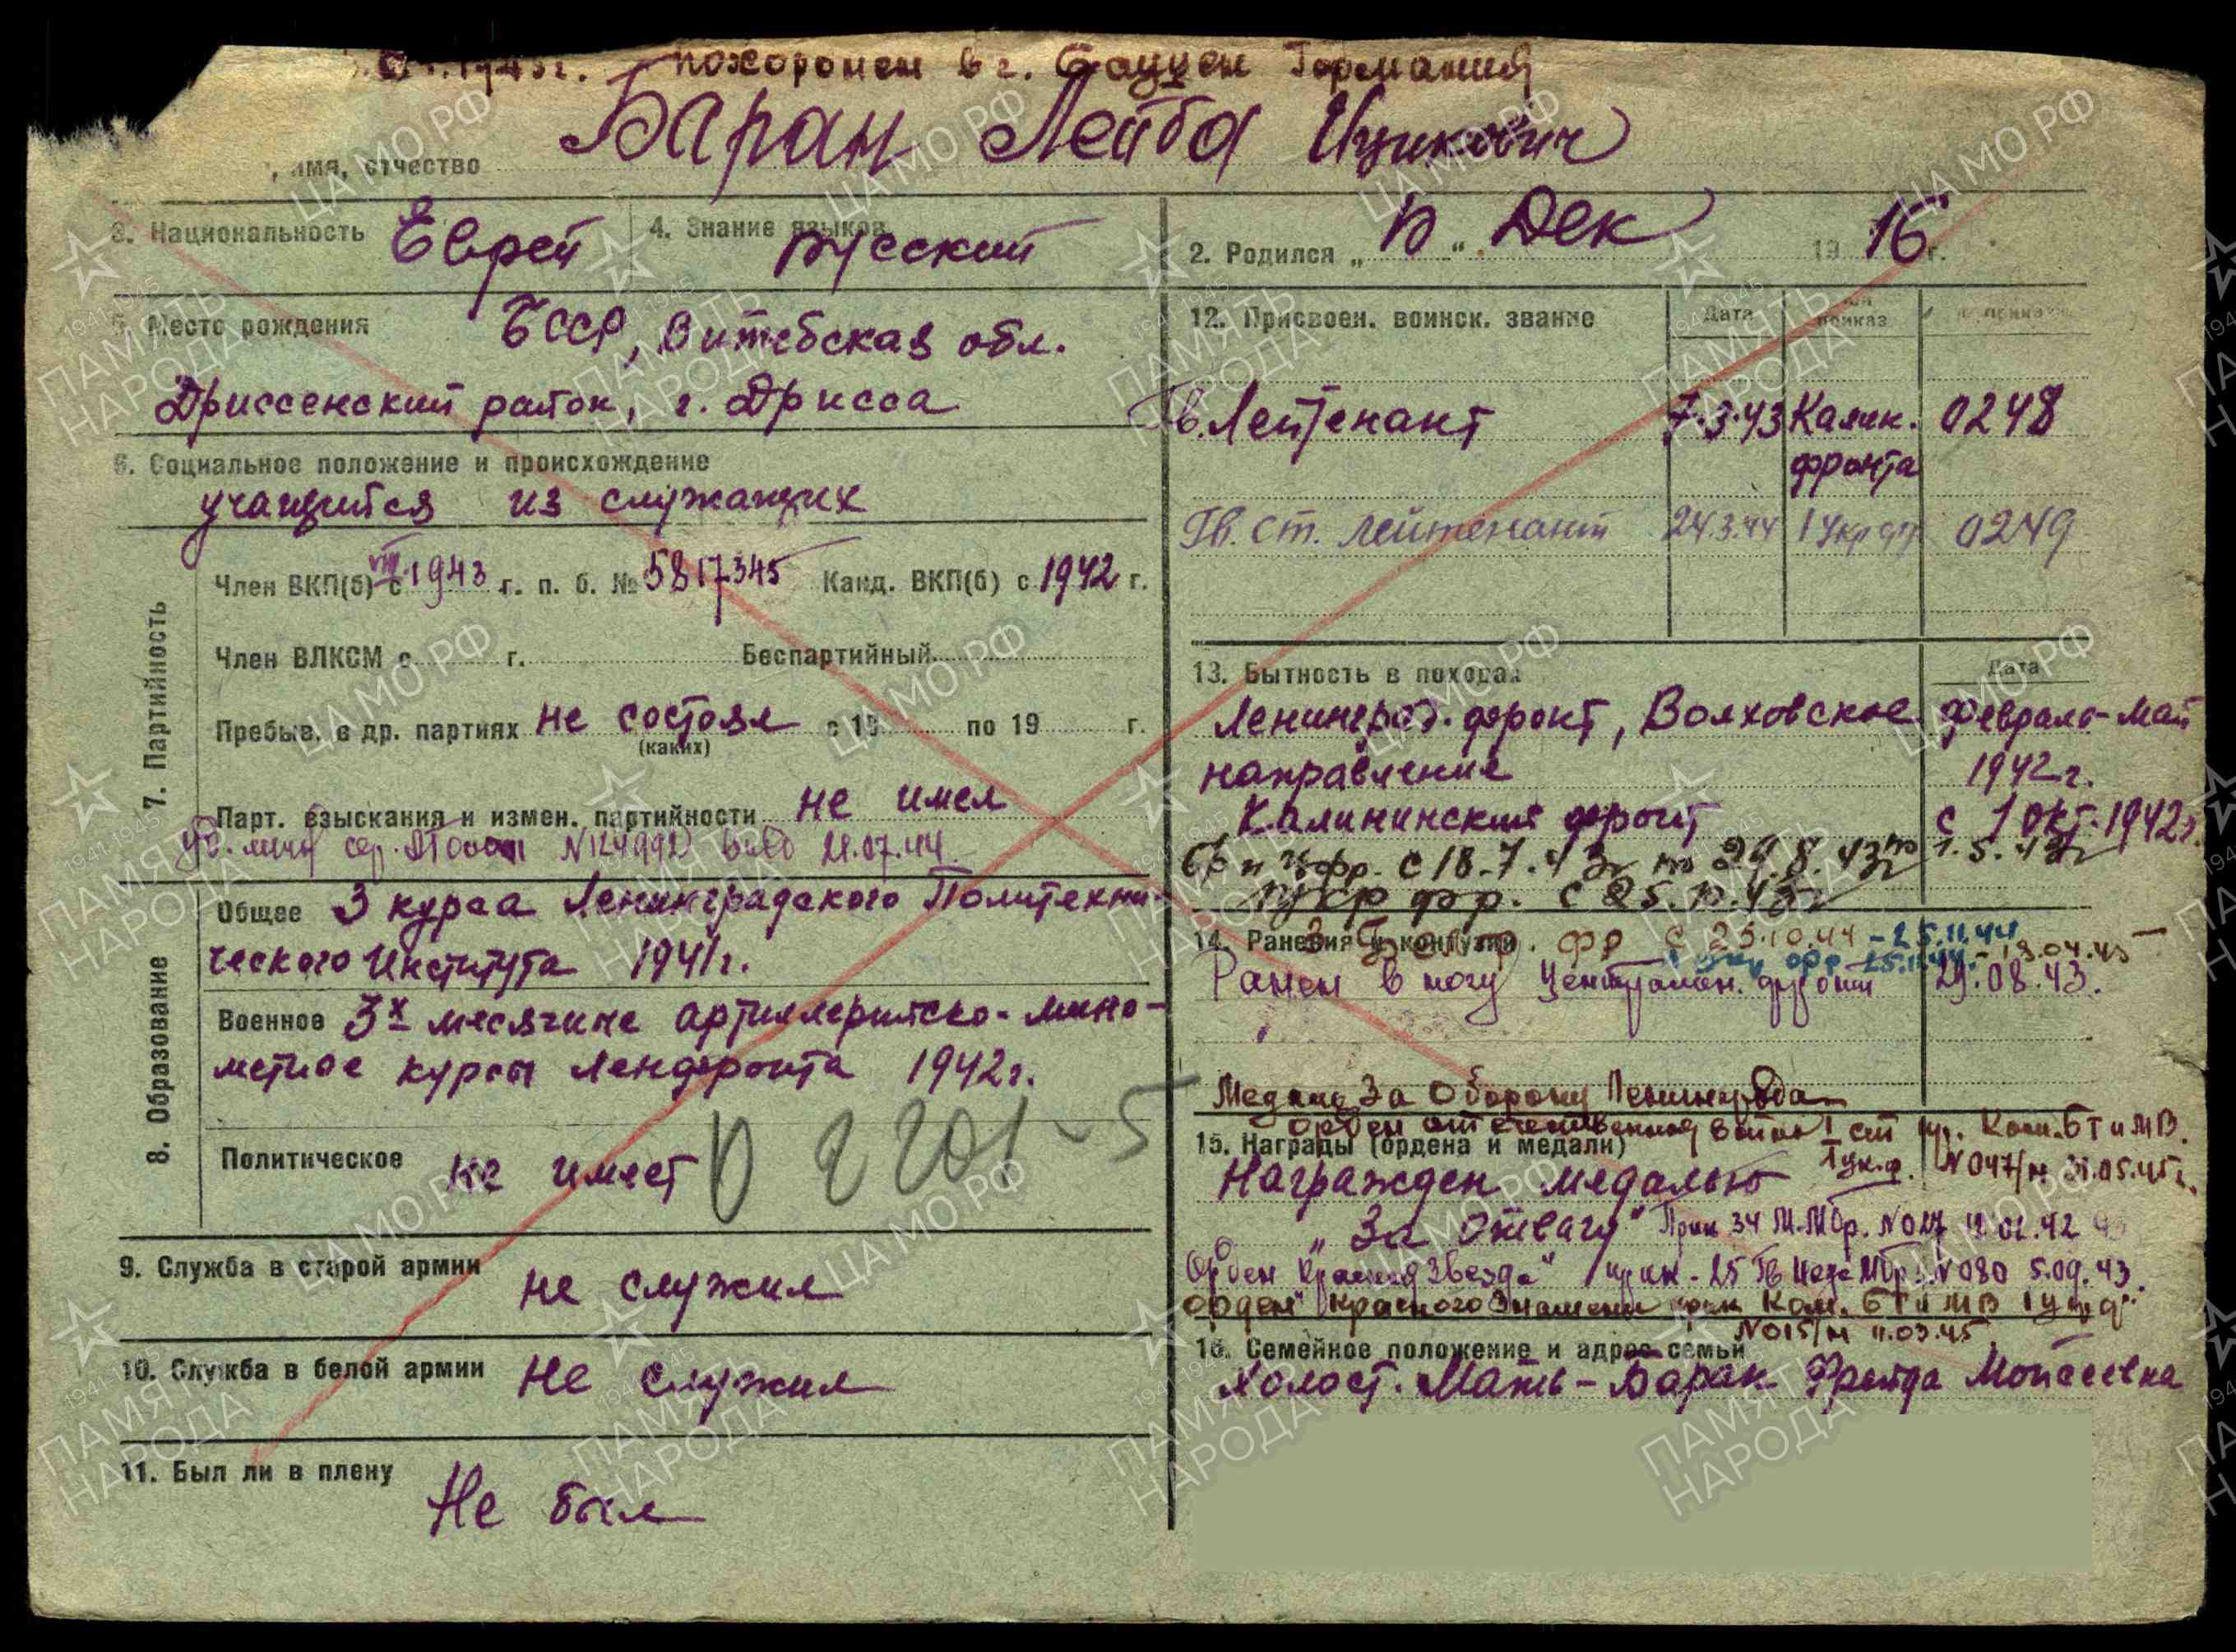 похоронен в г. Бауцен Германия
Баран Лейба Ицикович
, имя, отчество
3. Национальность Еврей 4. Знание языков русский
2. Родился „ " Дек 1916 г.
5. Место рождения БССР, Витебская обл.
Дриссенский район, г. Дрисса
6. Социальное положение и происхождение
учащийся из служащих
7. Партийность
Член ВКП(б) с VIII.1943 г. п. б. № 5817345 Канд. ВКП(б) с 1942 г.
Член ВЛКСМ с г. Беспартийный
Пребыв. в др. партиях не состоял с 19 по 19 г.
(каких)
Парт. взыскания и измен. партийности не имел
21.07.44
8. Образование
Общее 3 курса Ленинградского Политехни-
ческого Института 1941г.
Военное 3х месячные артиллерийско-мино-
метные курсы Ленфронта 1942г.
Политическое не имеет
9. Служба в старой армии не служил
10. Служба в белой армии не служил
11. Был ли в плену Не был
12. Присвоен. воинск. звание Дата Чей приказ № приказа
Гв. Лейтенант 7.3.43 Калин. фронта 0248
Гв. ст. лейтенант 24.3.44 1 Укр фр 0249
13. Бытность в походах Дата
Ленинград. фронт, Волховское Февраль-май
направление 1942г.
Калининский фронт с 1 окт. 1942г.
фр. с 18.7.43г по 29.8.43г по 1.5.43г
1 Укр фр. с
14. Ранения и контузии
фр с 25.10.44 - 25.11.44
1 Укр фр 25.11.44 - 19.04.45
Ранен в ногу Централен. фронт 29.08.43.
Медаль За Оборону Ленинграда
Орден отечественная война I ст пр. Ком. БТ и МВ.
1 ук.ф. N047/н 31.05.45г.
15. Награды (ордена и медали)
Награжден медалью
„За отвагу"
Орден „Красная Звезда" прик - 25 Гв N 080 5.09.43.
орден „Красного Знамени прик Ком. БТ и МВ 1 Укр ф
N015/н 11.03.45
16. Семейное положение и адрес семьи
Холост. Мать - Баран Фрейда Моисеевна
ЦА МО РФ
ПАМЯТЬ НАРОДА
1941-1945